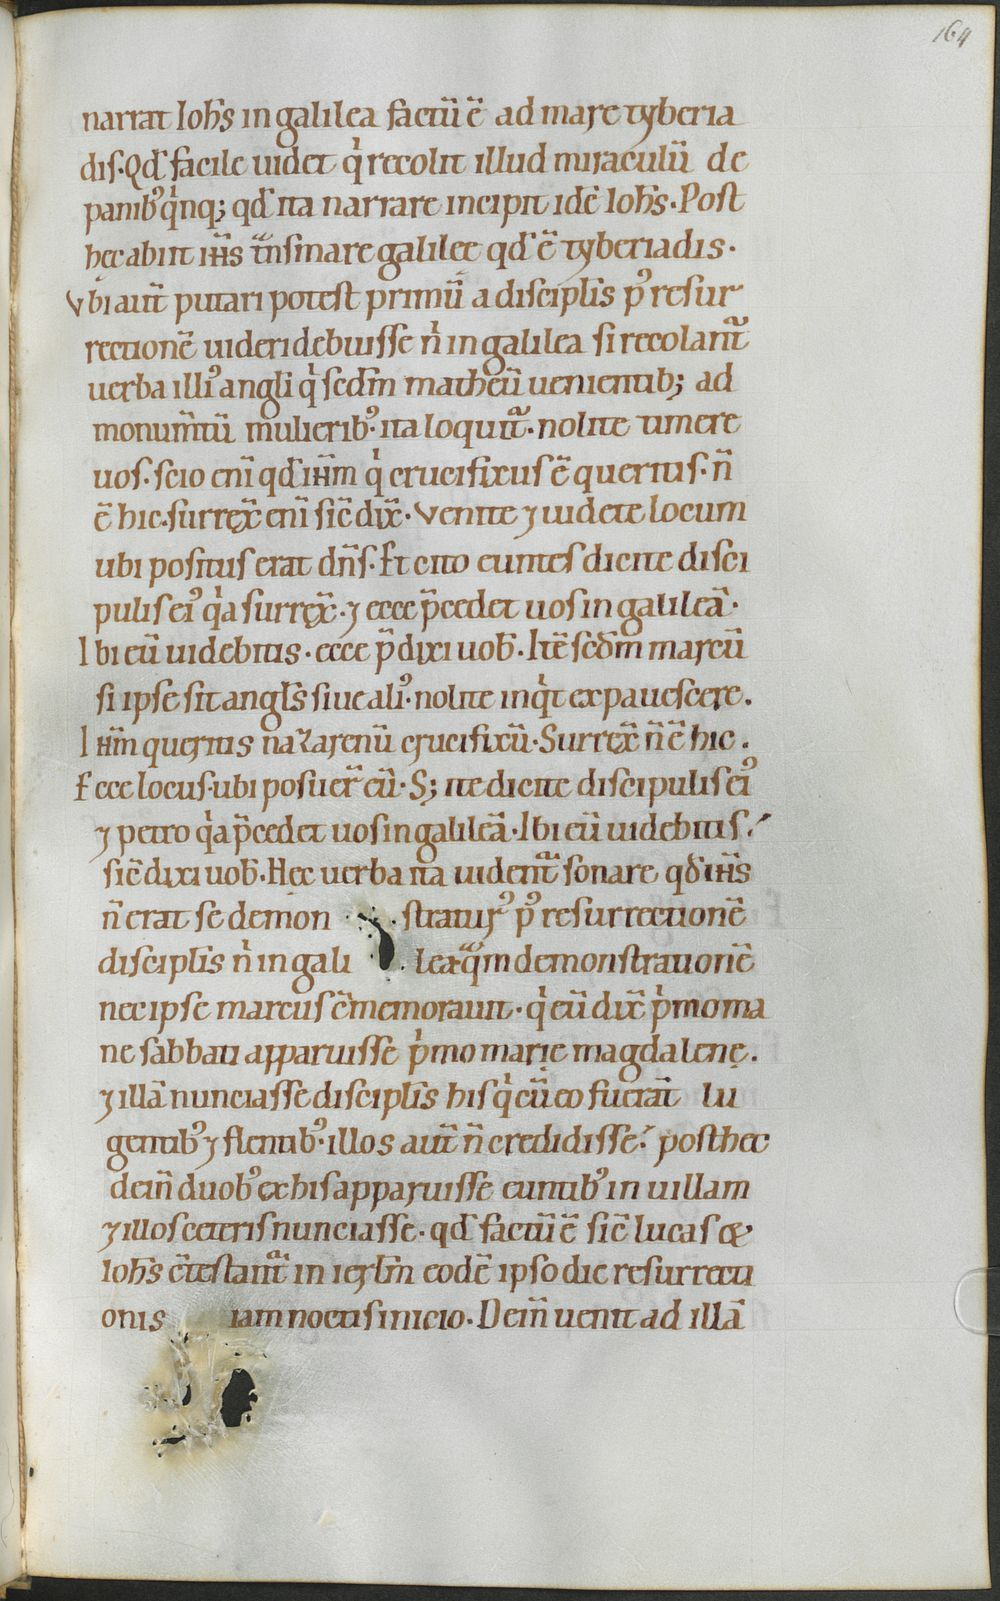 164
narrat Ioh̄s in galilea factū ē ad mare tyberia
dis. Qđ facile uidet qⁱ recolit illud miraculū de
panib᷒ qⁱnq; qđ ita narrare incipit idē Ioh̄s. Post
hęc abiit ih̄s t̄nsmare galileę qđ ē tyberiadis.
Vbi aut̄ putari potest primū a discipl̄is p᷒ resur
rectionē uideri debuisse n̄ in galilea si recolant̄
uerba illi᷒ angli qⁱ scd̄m matheū uenientib; ad
monum̄tū mulierib᷒ ita loquit̄. nolite timere
uos. scio eni̅ qđ ih̄m qⁱ crucifixus ē queritis. n̄
ē hic. surrex̄ eni̅ sic̄ dix̄. Venite ⁊ uidete locum
ubi positus erat dn̄s. Et cito euntes dicite disci
pulis ei᷒ qⁱa surrex̄. ⁊ ecce p̄cedet uos in galileā.
Ibi eū uidebitis. ecce p̄dixi uob̄. Itē scd̄m marcū
si ipse sit angl̄s siue ali᷒. nolite inqⁱt expauescere.
Ih̄m queritis nazarenū crucifixū. Surrex̄ n̄ ē hic.
Ecce locus. ubi posuer̄ eū. S; ite dicite discipulis ei᷒
⁊ petro qⁱa p̄cedet uos in galileā. Ibi eū uidebitis.
sic̄ dixi uob̄. Hec uerba ita uident̄ sonare qđ ih̄s
n̄ erat se demon stratur᷒ p᷒ resurrectionē
discipl̄is n̄ in gali lea. quā demonstrationē
nec ipse marcus c̄memorauit. qⁱ eū dix̄ pⁱmo ma
ne sabbati apparuisse pⁱmo marię magdalenę.
⁊ illā nunciasse discipl̄is his qⁱ cū eo fuerāt lu
gentib᷒ ⁊ flentib᷒. illos aut̄ n̄ credidisse. post hęc
dein̄ duob᷒ ex his apparuisse euntib᷒ in uillam
⁊ illos ceteris nunciasse. qđ factū ē sic̄ lucas &
Ioh̄s c̄testant̄ in ierl̄m eodē ipso die resurrecti
onis iam noctis inicio. Dein̄ uenit ad illā